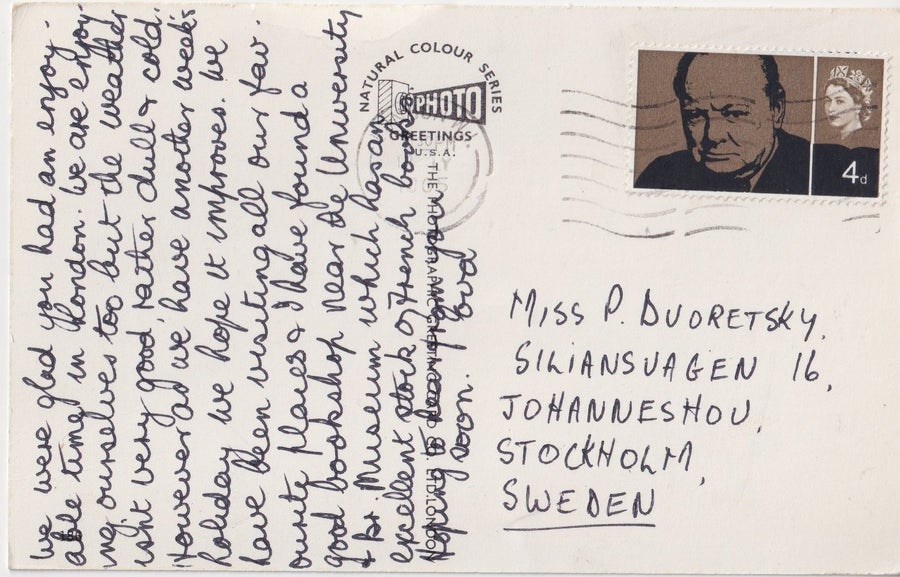 We were glad you had an enjoy-
able time in London. We are enjoy-
ing ourselves too but the weather
isnt very good, rather dull & cold.
However as we have another week's
holiday we hope it improves. We
have been visiting all our fav-
ourite places & I have found a
good bookshop near the University
& Br. Museum which has an
excellent stock of French books.
Hoping soon. Love
NATURAL COLOUR SERIES
PHOTO
GREETINGS
U.S.A.
THE PHOTOGRAPHIC GREETING CARD CO. LTD. LONDON
4d
MISS P. DVORETSKY,
SILJANSVAGEN 16,
JOHANNESHOV,
STOCKHOLM,
SWEDEN